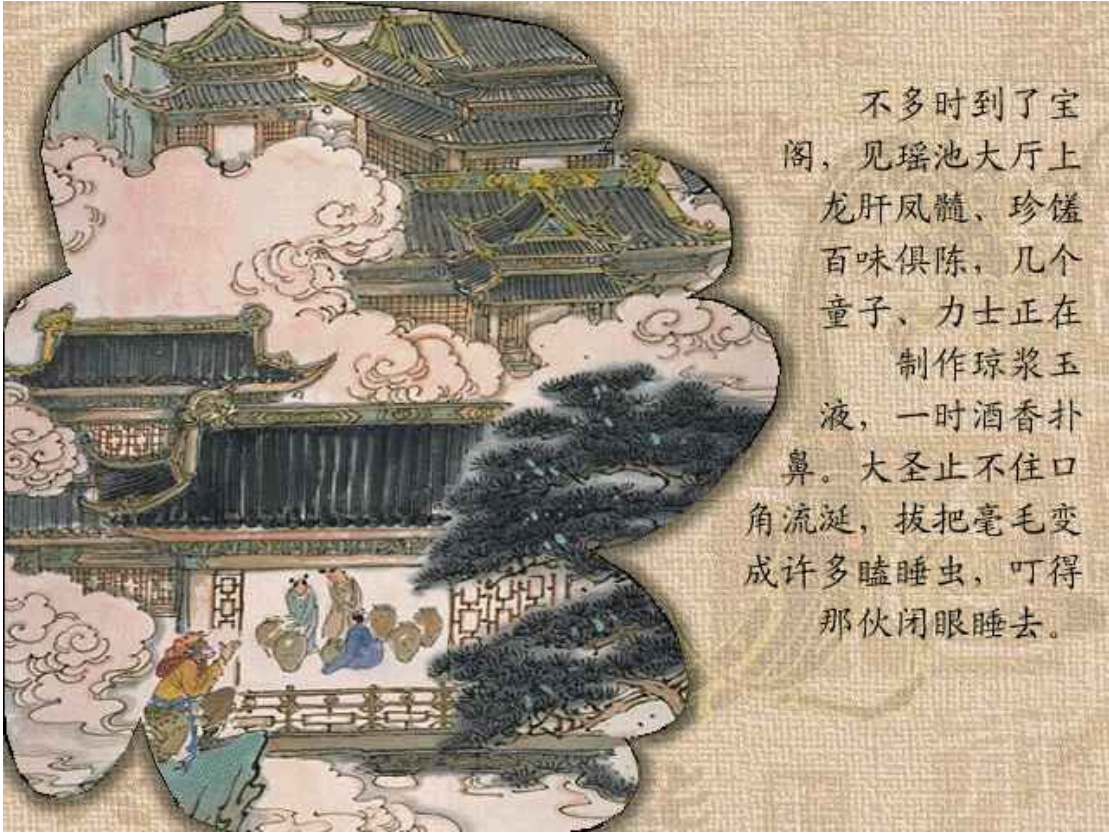 不多时到了宝
阁，见瑶池大厅上
龙肝凤髓、珍馐
百味俱陈，几个
童子、力士正在
制作琼浆玉
液，一时酒香扑
鼻。大圣止不住口
角流涎，拔把毫毛变
成许多瞌睡虫，叮得
那伙闭眼睡去。